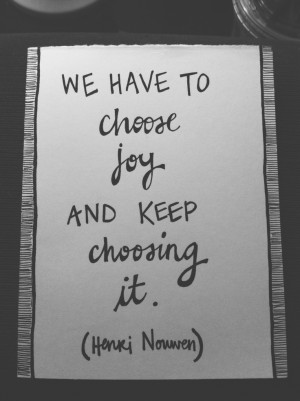 WE HAVE TO
choose
joy
AND KEEP
choosing
it.
(Henri Nouwen)